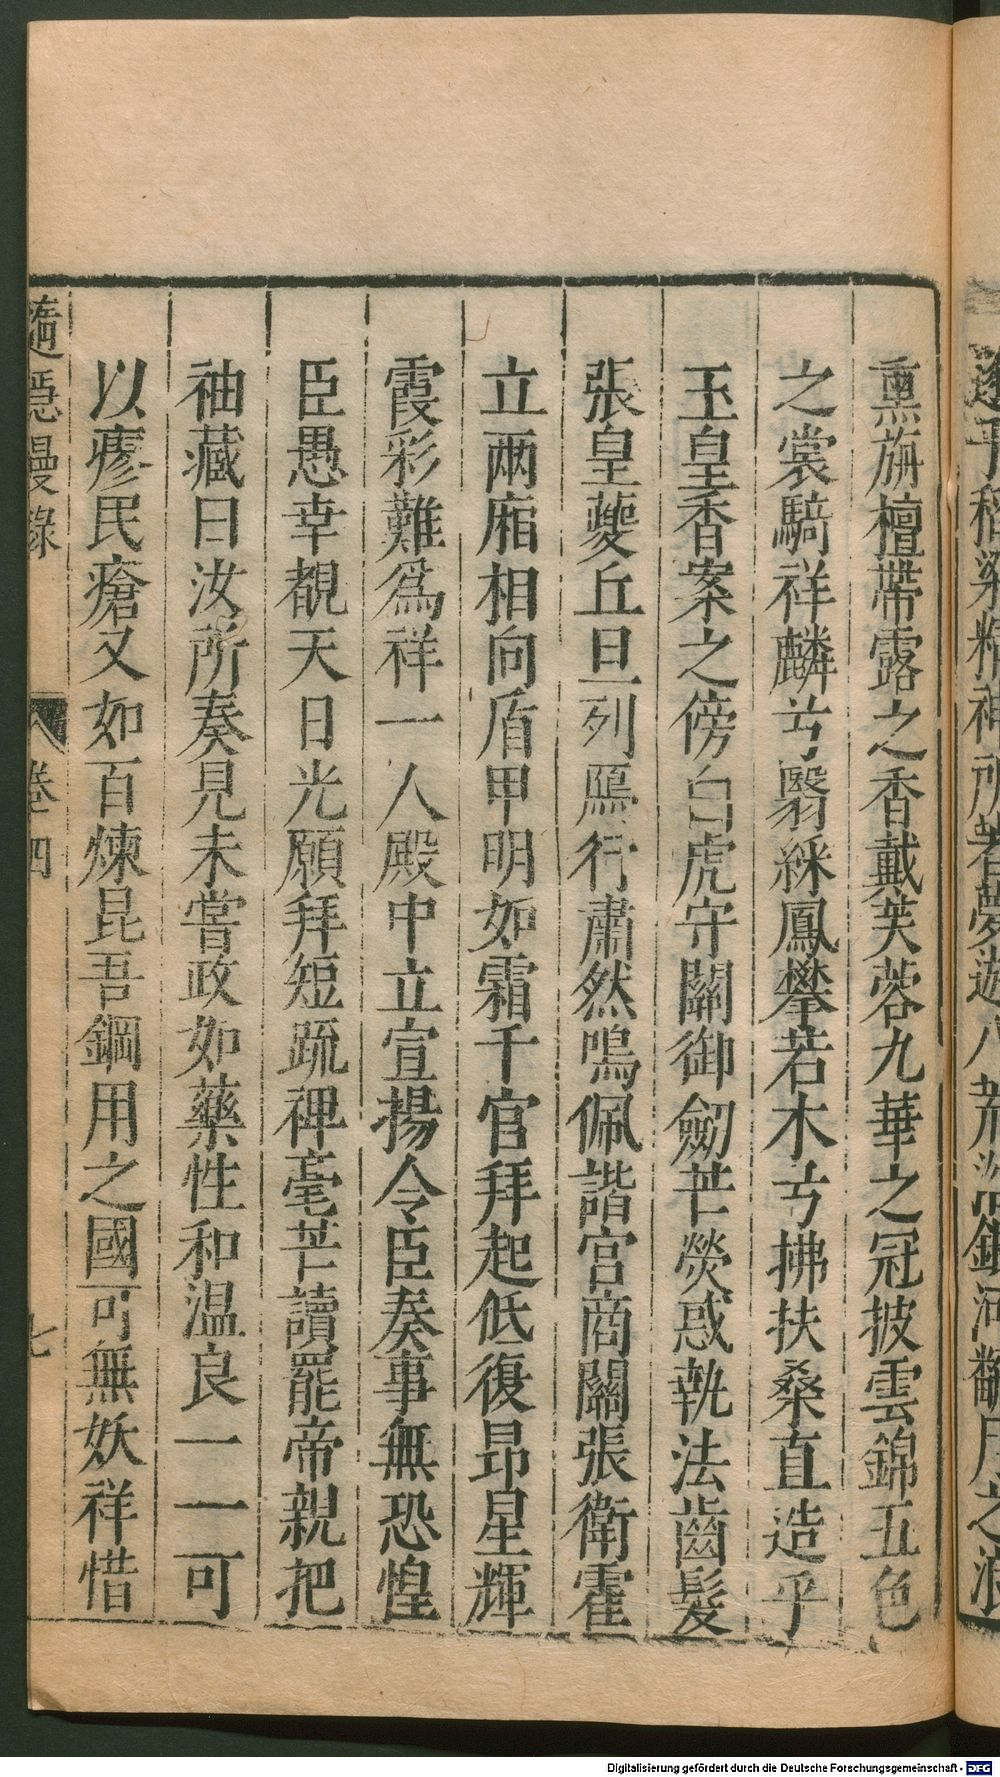 熏旃檀帶露之香戴芙蓉九華之冠披雲錦五色
之裳騎祥麟兮翳綵鳳攀若木兮拂扶桑直造乎
玉皇香案之傍白虎守關御劒芒熒惑執法齒髮
張皇夔丘旦列鴈行肅然鳴佩諧宮商關張衛霍
立兩廂相向盾甲明如霜千官拜起低復昂星輝
霞彩難爲祥一人殿中立宣揚令臣奏事無恐惶
臣愚幸覩天日光願拜短疏裨毫芒讀罷帝親把
袖藏曰汝所奏見未嘗政如藥性和温良一一可
以瘳民瘡又如百煉昆吾鋼用之國可無妖祥惜
隨隱漫錄
卷四
七
Digitalisierung gefördert durch die Deutsche Forschungsgemeinschaft - DFG